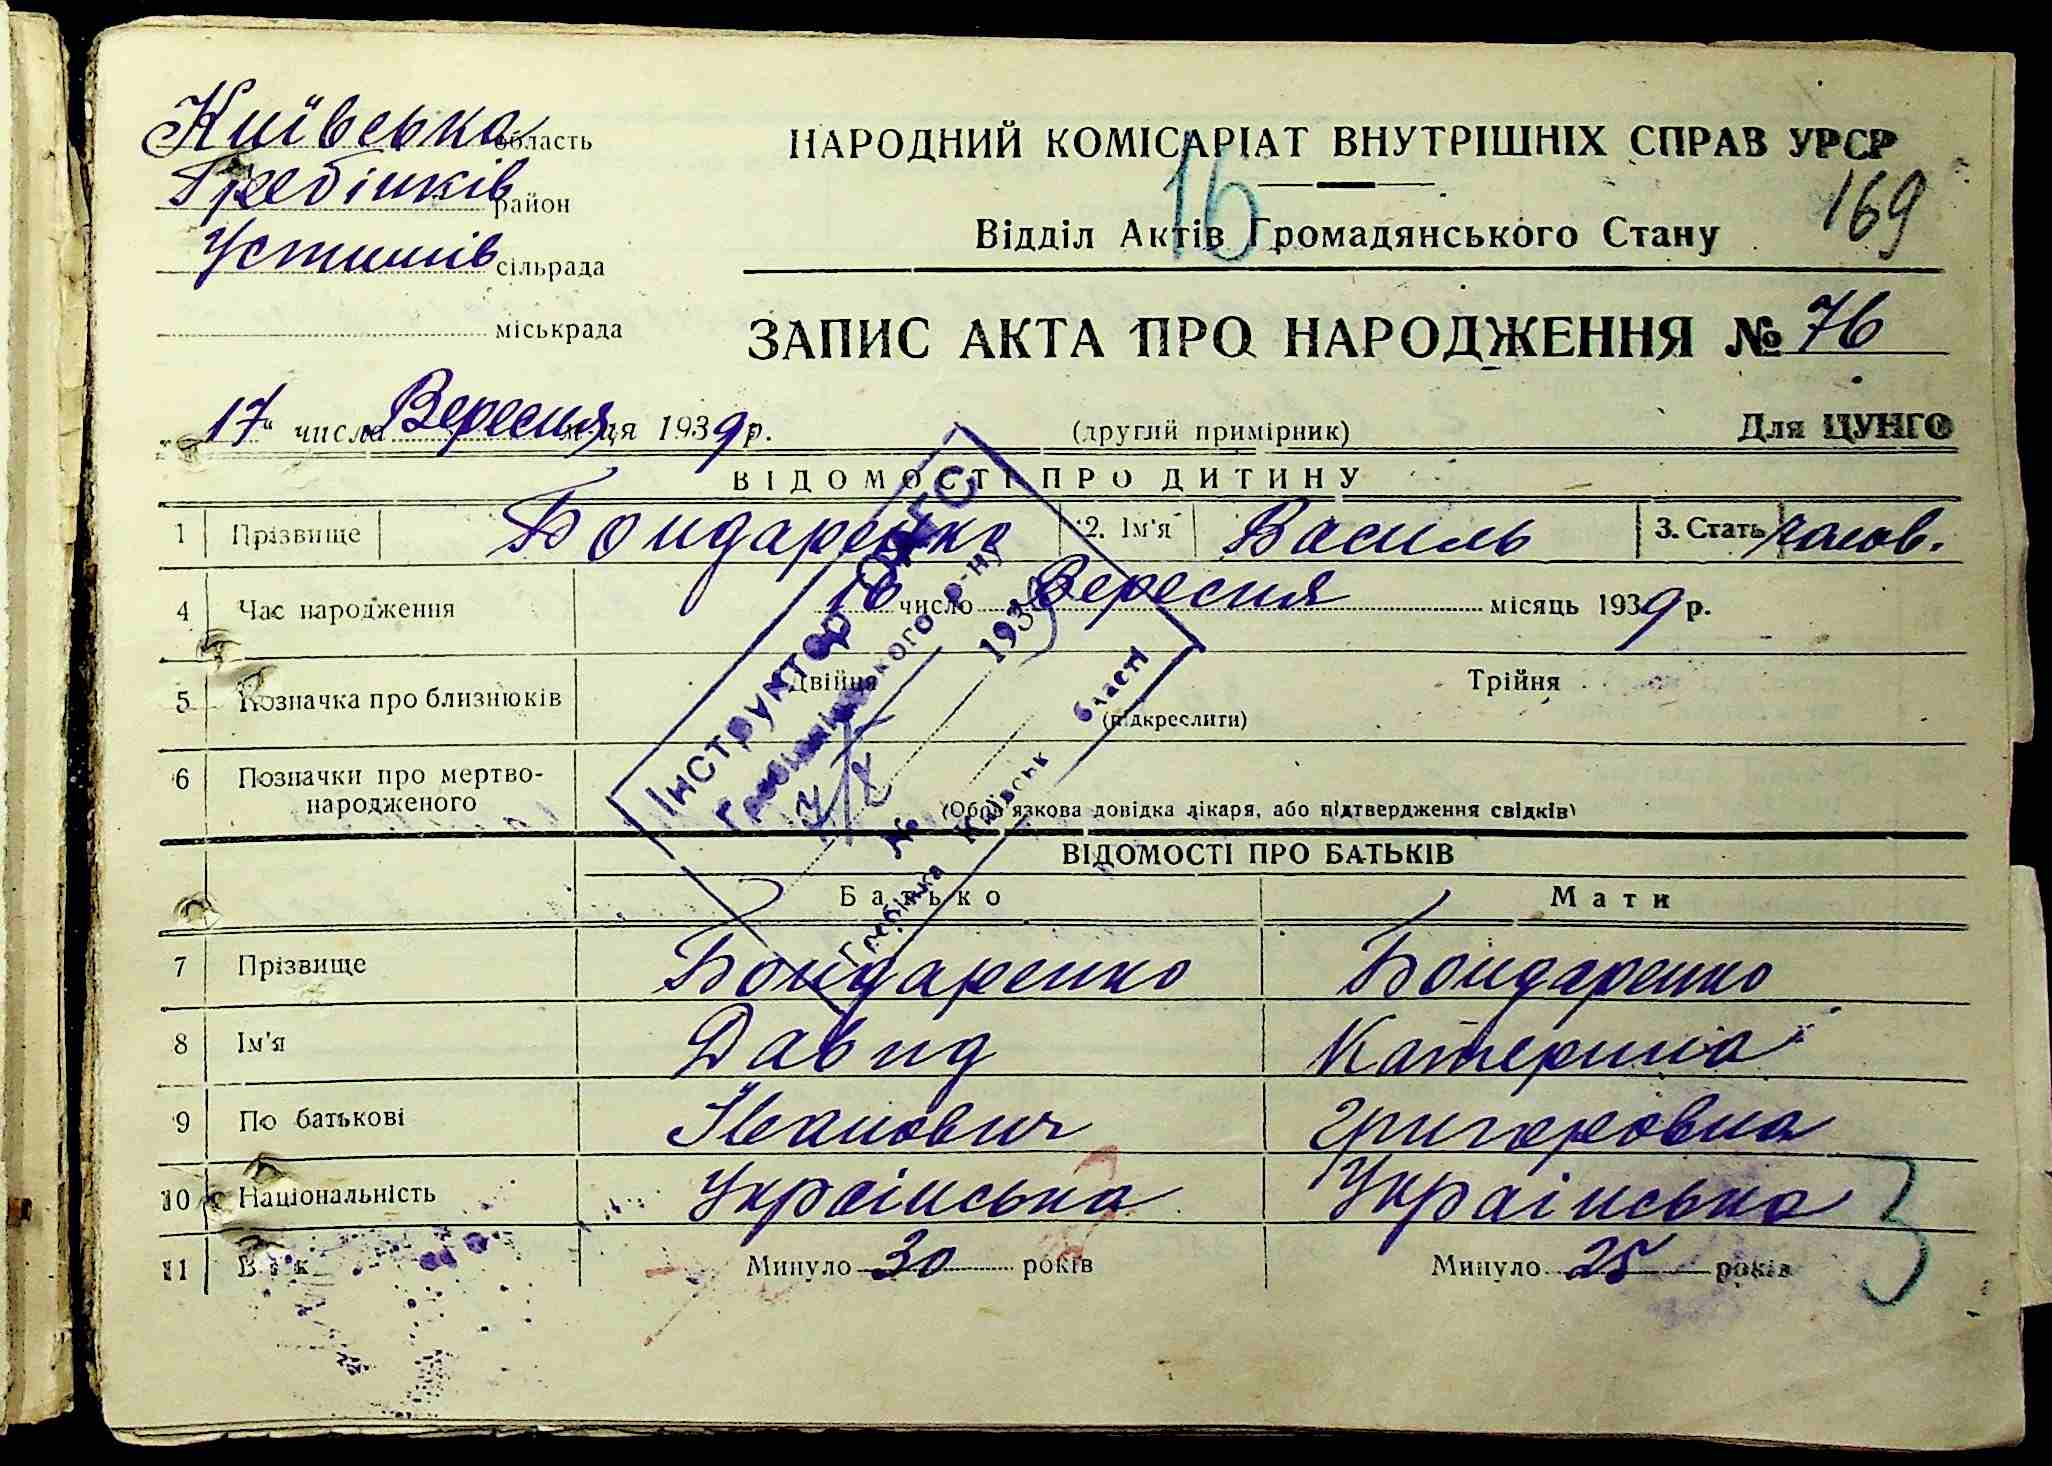 Київська область
Гребінків район
Устимів сільрада
міськрада
НАРОДНИЙ КОМІСАРІАТ ВНУТРІШНІХ СПРАВ УРСР
16
169
Відділ Актів Громадянського Стану
ЗАПИС АКТА ПРО НАРОДЖЕННЯ № 76
"17" числа Вересня м-ця 1939 р.
(другий примірник)
Для ЦУНГО
ВІДОМОСТІ ПРО ДИТИНУ
1 Прізвище Бондаренко 2. Ім'я Василь 3. Стать чолов.
4 Час народження 16 число Вересня місяць 1939 р.
5 Позначка про близнюків Двійня Трійня
(підкреслити)
6 Позначки про мертво-
народженого
(Обов'язкова довідка лікаря, або підтвердження свідків)
Інструктор ОАГС
Гребінківського р-ну
193
№
Гребінка Київськ області
ВІДОМОСТІ ПРО БАТЬКІВ
Батько Мати
7 Прізвище Бондаренко Бондаренко
8 Ім'я Давид Катерина
9 По батькові Іванович Григоровна
10 Національність Українська Українська
3
11 Вік Минуло 30 років Минуло 25 років